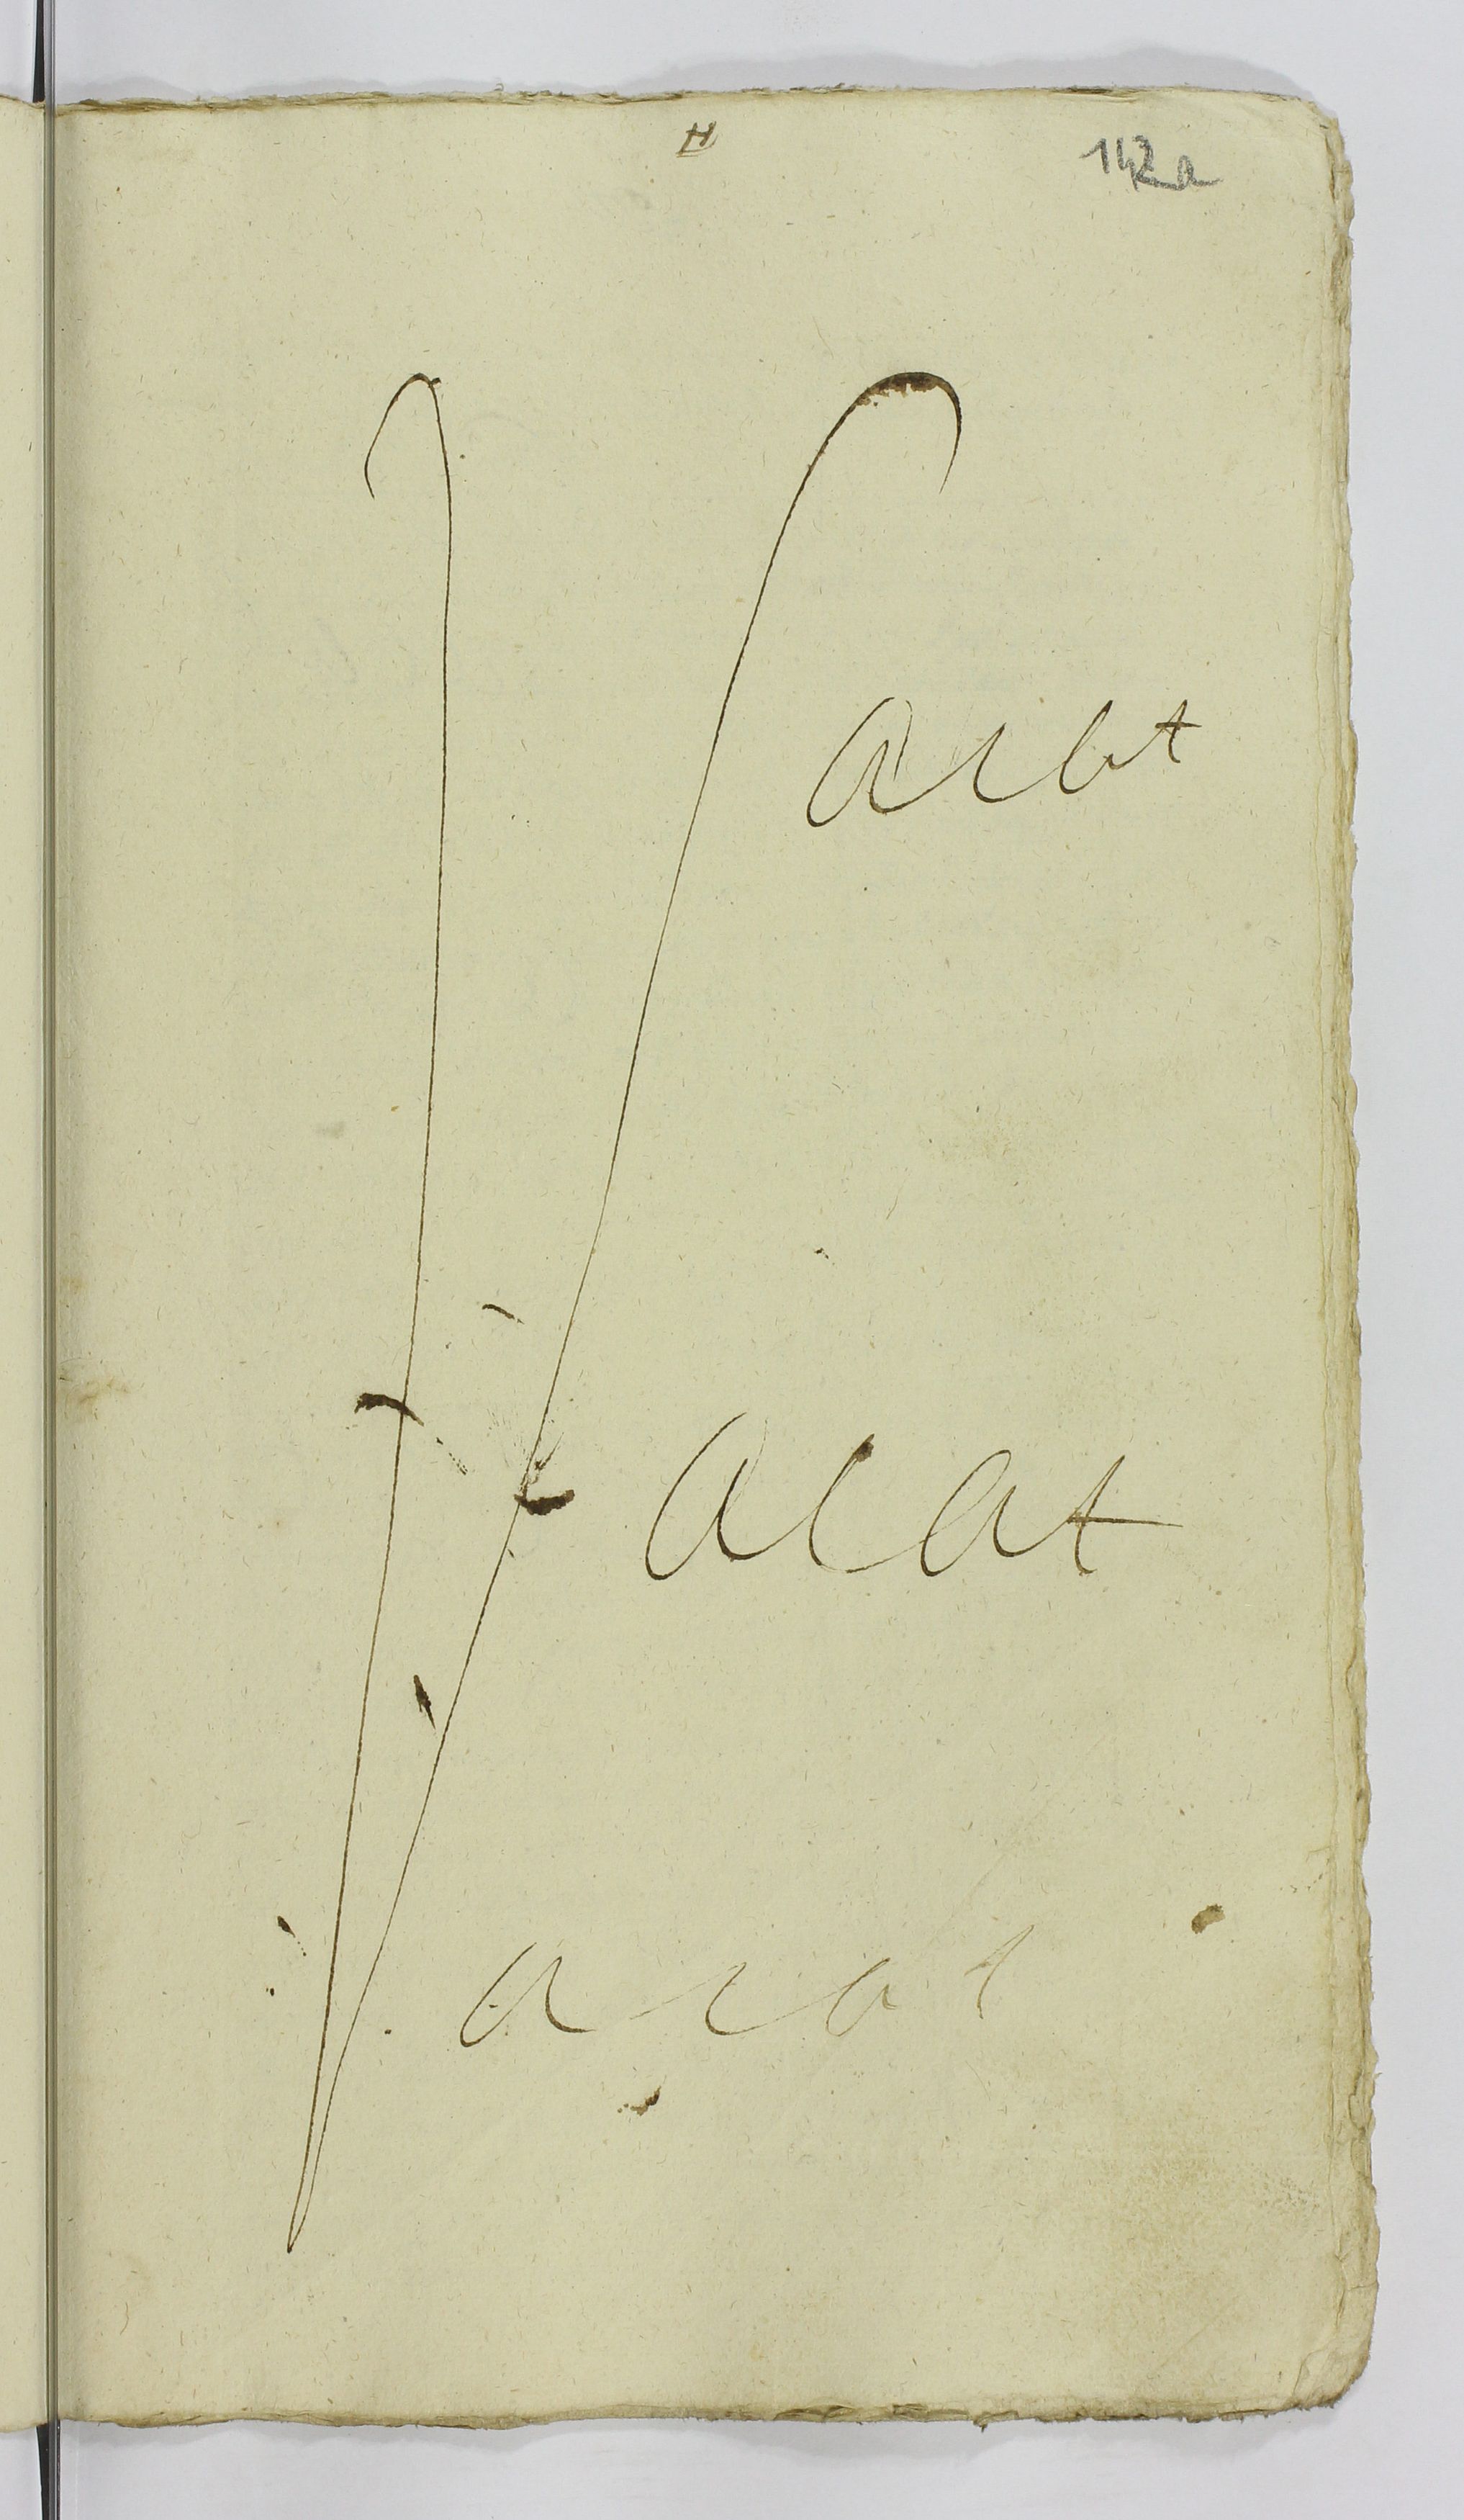 H
142a
vacat
vacat
vacat